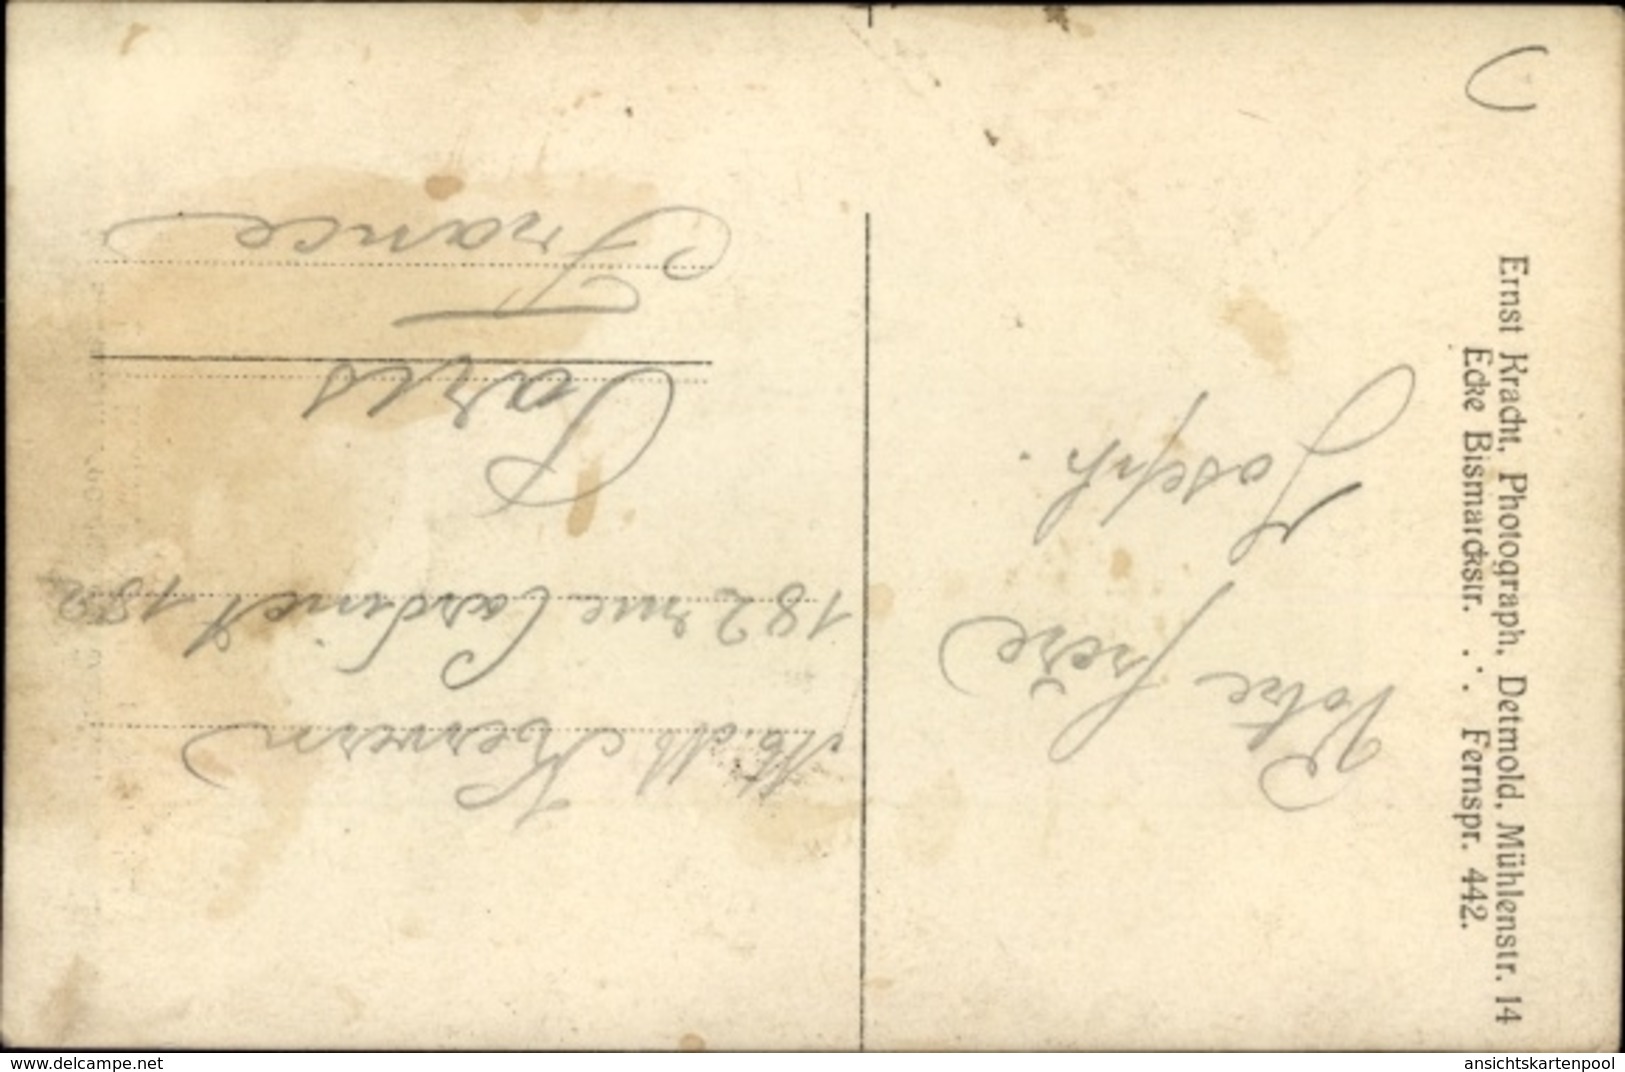 Ernst Kracht, Photograph, Detmold, Mühlenstr. 14
Ecke Bismarckstr. . · . Fernspr. 442.
Votre frère
Joseph.
Kervern
182 rue Cardinet 182
Paris
France
delcampe.net
ansichtskartenpool